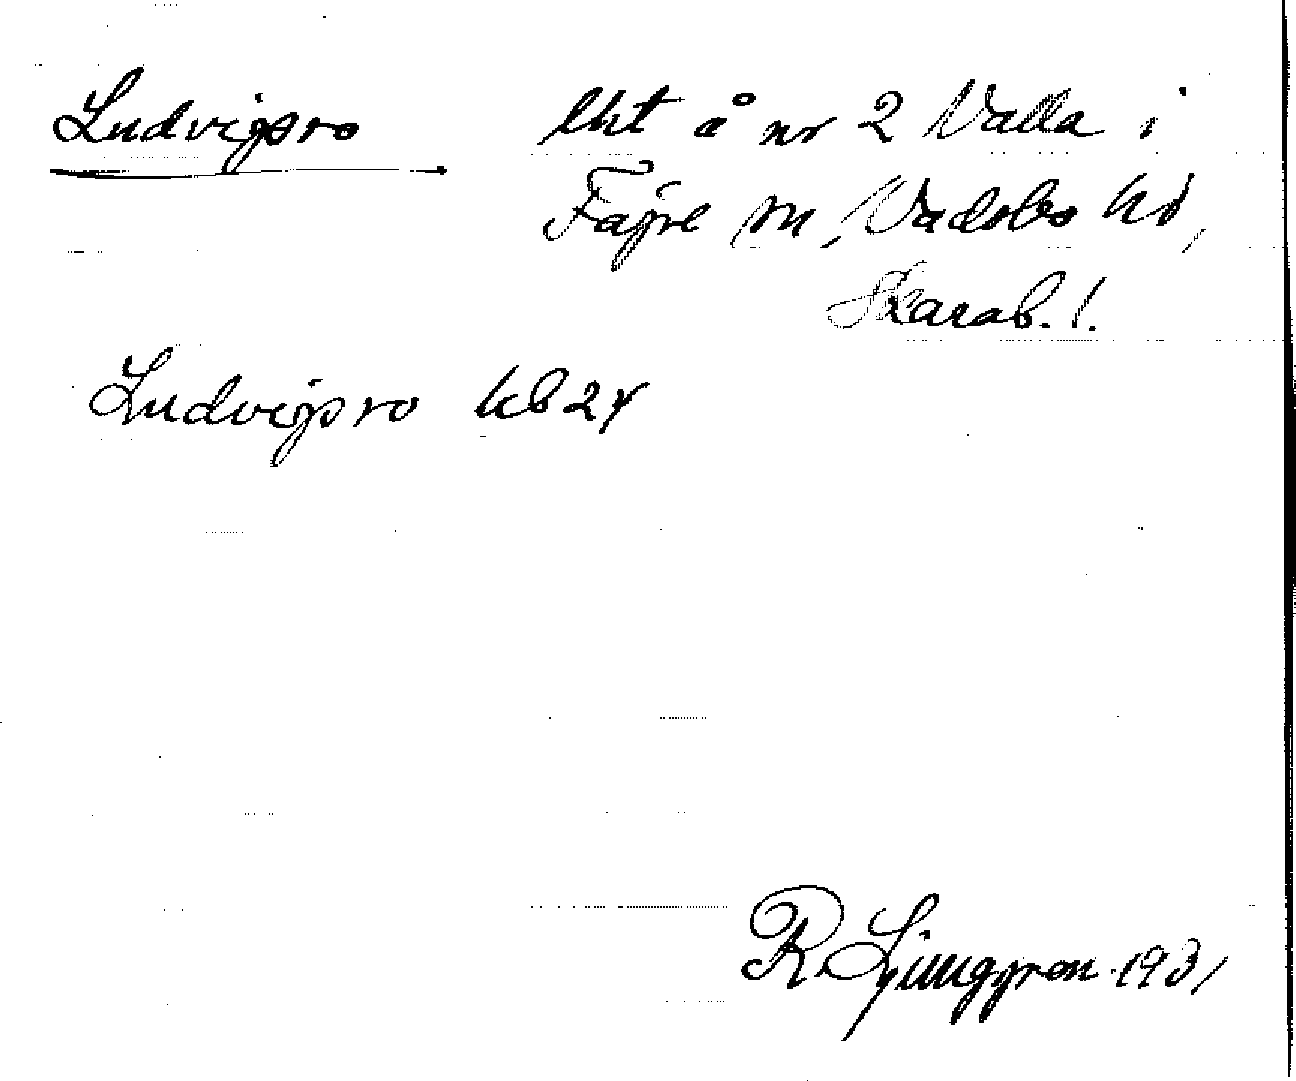 Ludvigsro lht å nr 2 Valla i
Fägre sn, Vadsbo hd,
Skarab. l.
Ludvigsro kb 24
R. Ljunggren 1931